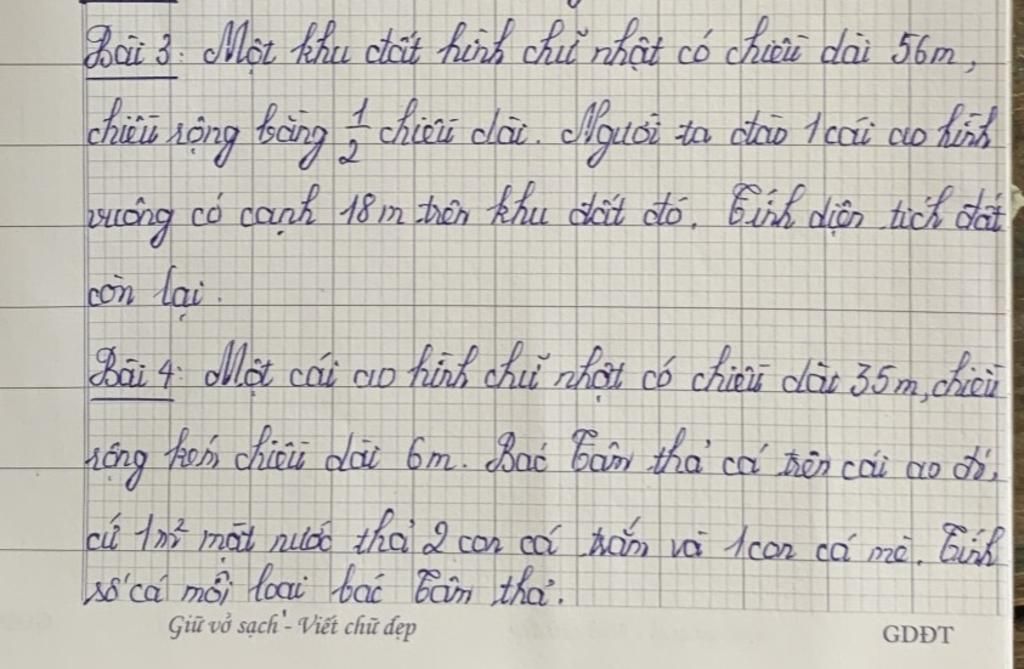 Bài 3: Một khu đất hình chữ nhật có chiều dài 56m,
chiều rộng bằng 1/2 chiều dài. Người ta đào 1 cái ao hình
vuông có cạnh 18m trên khu đất đó. Tính diện tích đất
còn lại.
Bài 4: Một cái ao hình chữ nhật có chiều dài 35m, chiều
rộng kém chiều dài 6m. Bác Tâm thả cá trên cái ao đó,
cứ 1m² mặt nước thả 2 con cá trắm và 1 con cá mè. Tính
số cá mỗi loại bác Tâm thả.
Giữ vở sạch - Viết chữ đẹp
GDĐT